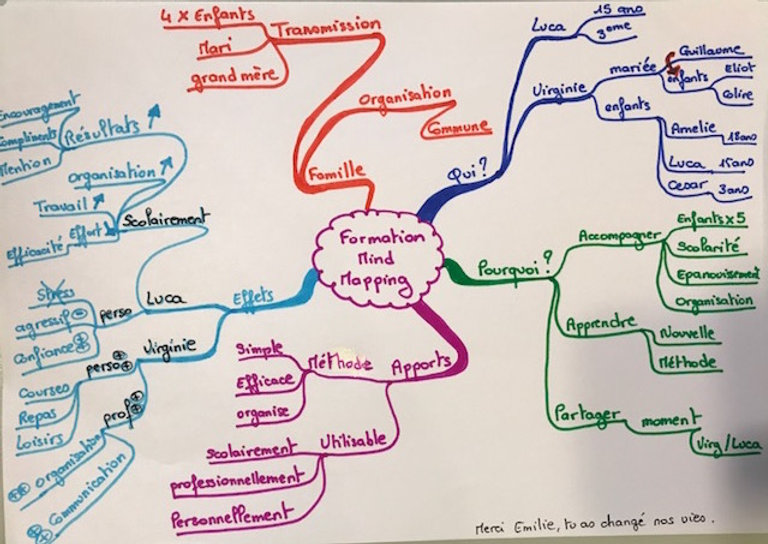 Formation
Mind
Mapping
Qui?
Luca
15 ans
3eme
Virginie
mariée
Guillaume
enfants
Eliot
enfants
Amelie
18ans
Luca
15ans
Cesar
3ans
Pourquoi?
Accompagner
Enfants x 5
Scolarité
Epanouissement
Organisation
Apprendre
Nouvelle
Méthode
Partager
moment
Virg/Luca
Apports
Méthode
Simple
Efficace
organise
Utilisable
scolairement
professionnellement
Personnellement
Effets
Luca
Scolairement
Résultats
Encouragement
Compliments
Mention
Organisation
Travail
Effort
Efficacité
perso
Stress
agressif -
Confiance +
Virginie
perso +
Courses
Repas
Loisirs
prof +
++ organisation
++ Communication
Famille
Transmission
4 x Enfants
Mari
grand mère
Organisation
Commune
Merci Emilie, tu as changé nos vies.